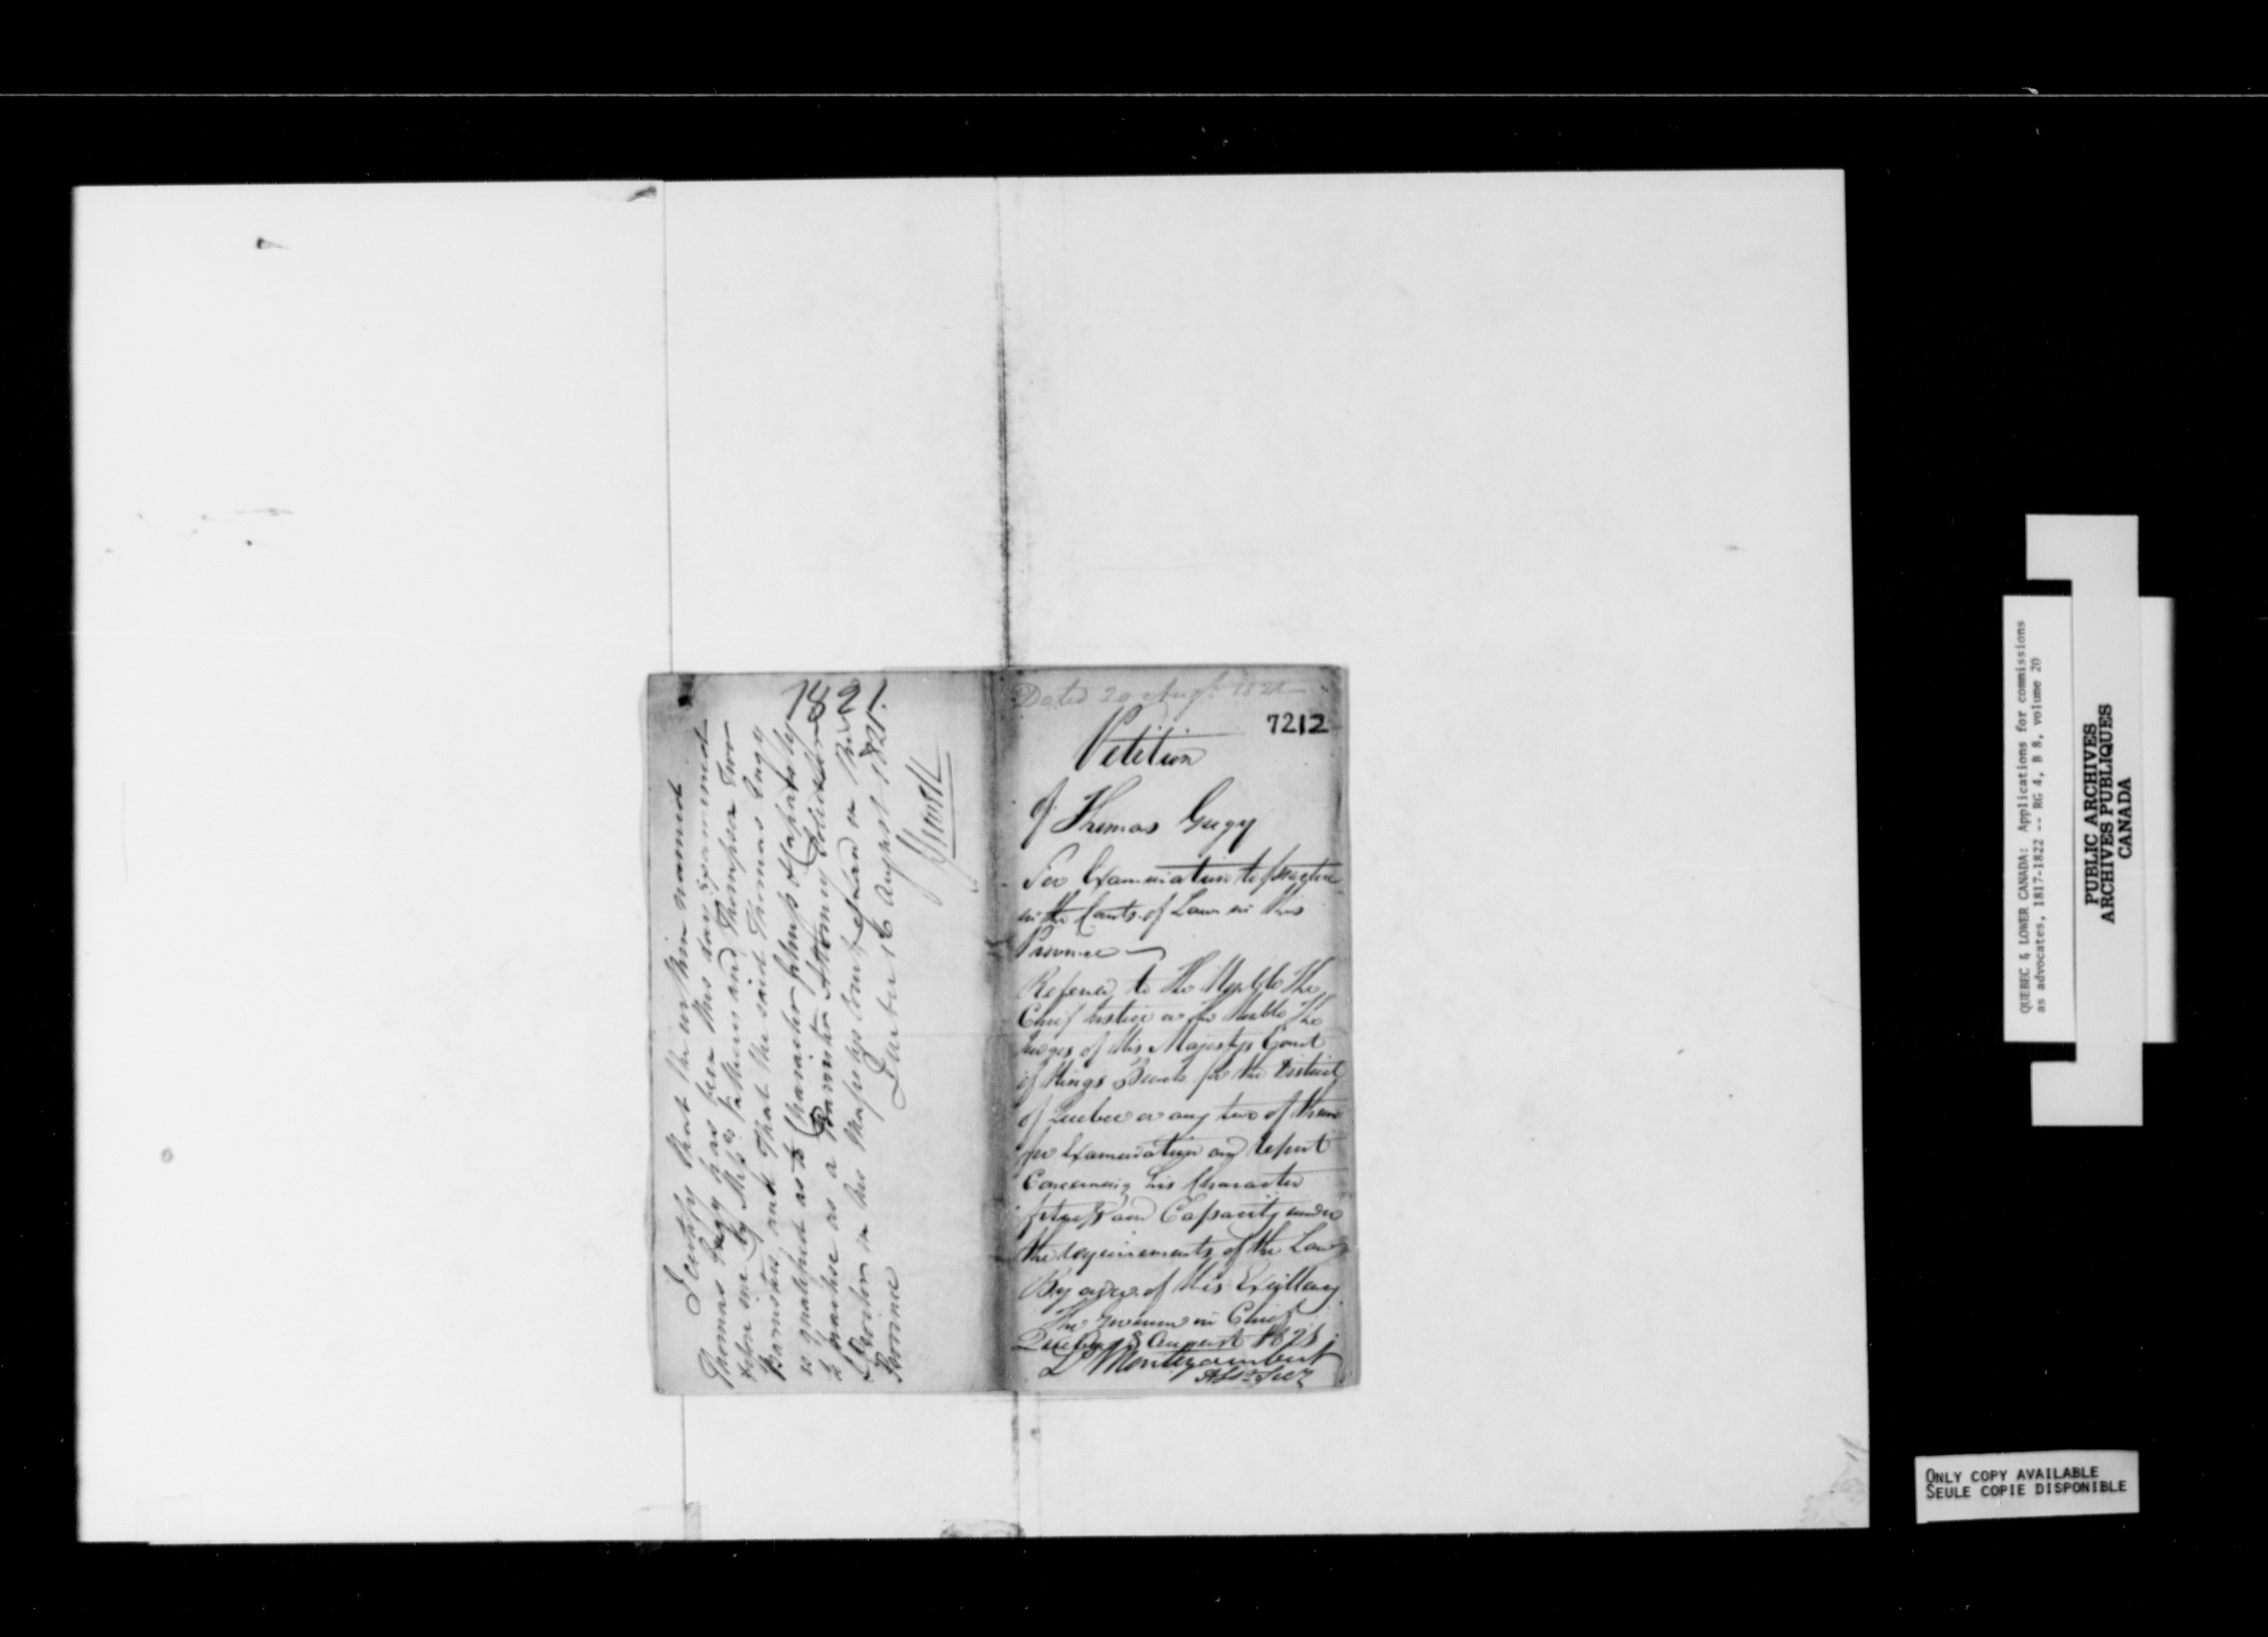 1821
I certify that the within named
Thomas Gugy has been this day Examined
before me by Messrs and Thompson Two
Barristers, and That the said Thomas Gugy
is qualified as to Character fitness & Capacity
to practise as a Barrister Attorney Solicitor &
Proctor in His Majestys Courts of Law in this
Province
Quebec 16 August 1821.
JSewell
Dated 20 Augt 1821
7212
Petition
of Thomas Gugy
For Examination to practice
in the Courts of Law in this
Province
Referred to The Honble The
Chief Justice or the Honble The
Judges of His Majestys Court
of Kings Bench for the District
of Quebec or any two of them
for Examination and report
Concerning his Character
fitness and Capacity under
the requirements of the Law
By order of His Excellency
The Governor in Chief
Quebec 8 August 1821
L Montizambert
Asst Secy
QUEBEC & LOWER CANADA: Applications for commissions
as advocates, 1817-1822 -- RG 4, B 8, volume 20
PUBLIC ARCHIVES
ARCHIVES PUBLIQUES
CANADA
ONLY COPY AVAILABLE
SEULE COPIE DISPONIBLE